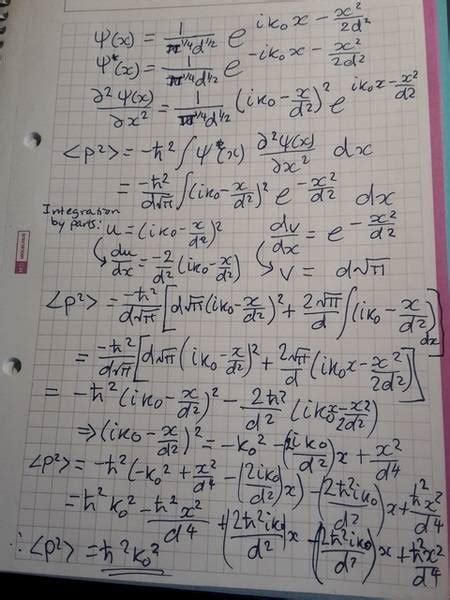 ψ(x) = 1/(π^{1/4}d^{1/2}) e^{ik₀x - x²/2d²}
ψ*(x) = 1/(π^{1/4}d^{1/2}) e^{-ik₀x - x²/2d²}
∂²ψ(x)/∂x² = 1/(π^{1/4}d^{1/2}) (ik₀ - x/d²)² e^{ik₀x - x²/d2}
<p²> = -ħ² ∫ ψ*(x) ∂²ψ(x)/∂x² dx
= -ħ²/(d√π) ∫(ik₀ - x/d²)² e^{-x²/d²} dx
Integration by parts: u = (ik₀ - x/d²)² dv/dx = e^{-x²/d²}
du/dx = -2/d² (ik₀ - x/d²) v = d√π
<p²> = -ħ²/(d√π) [d√π(ik₀ - x/d²)² + 2√π/d ∫(ik₀ - x/d²) dx]
= -ħ²/(d√π) [d√π(ik₀ - x/d²)² + 2√π/d (ik₀x - x²/2d²)]
= -ħ²(ik₀ - x/d²)² - 2ħ²/d² (ik₀x - x²/2d²)
⇒ (ik₀ - x/d²)² = -k₀² - (2ik₀/d²)x + x²/d4
<p²> = -ħ²(-k₀² + x²/d4 - (2ik₀/d²)x) - (2ħ²ik₀/d²)x + ħ²x²/d4
= ħ²k₀² - ħ²x²/d4 + (2ħ²ik₀/d²)x - (2ħ²ik₀/d²)x + ħ²x²/d4
∴ <p²> = ħ²k₀²